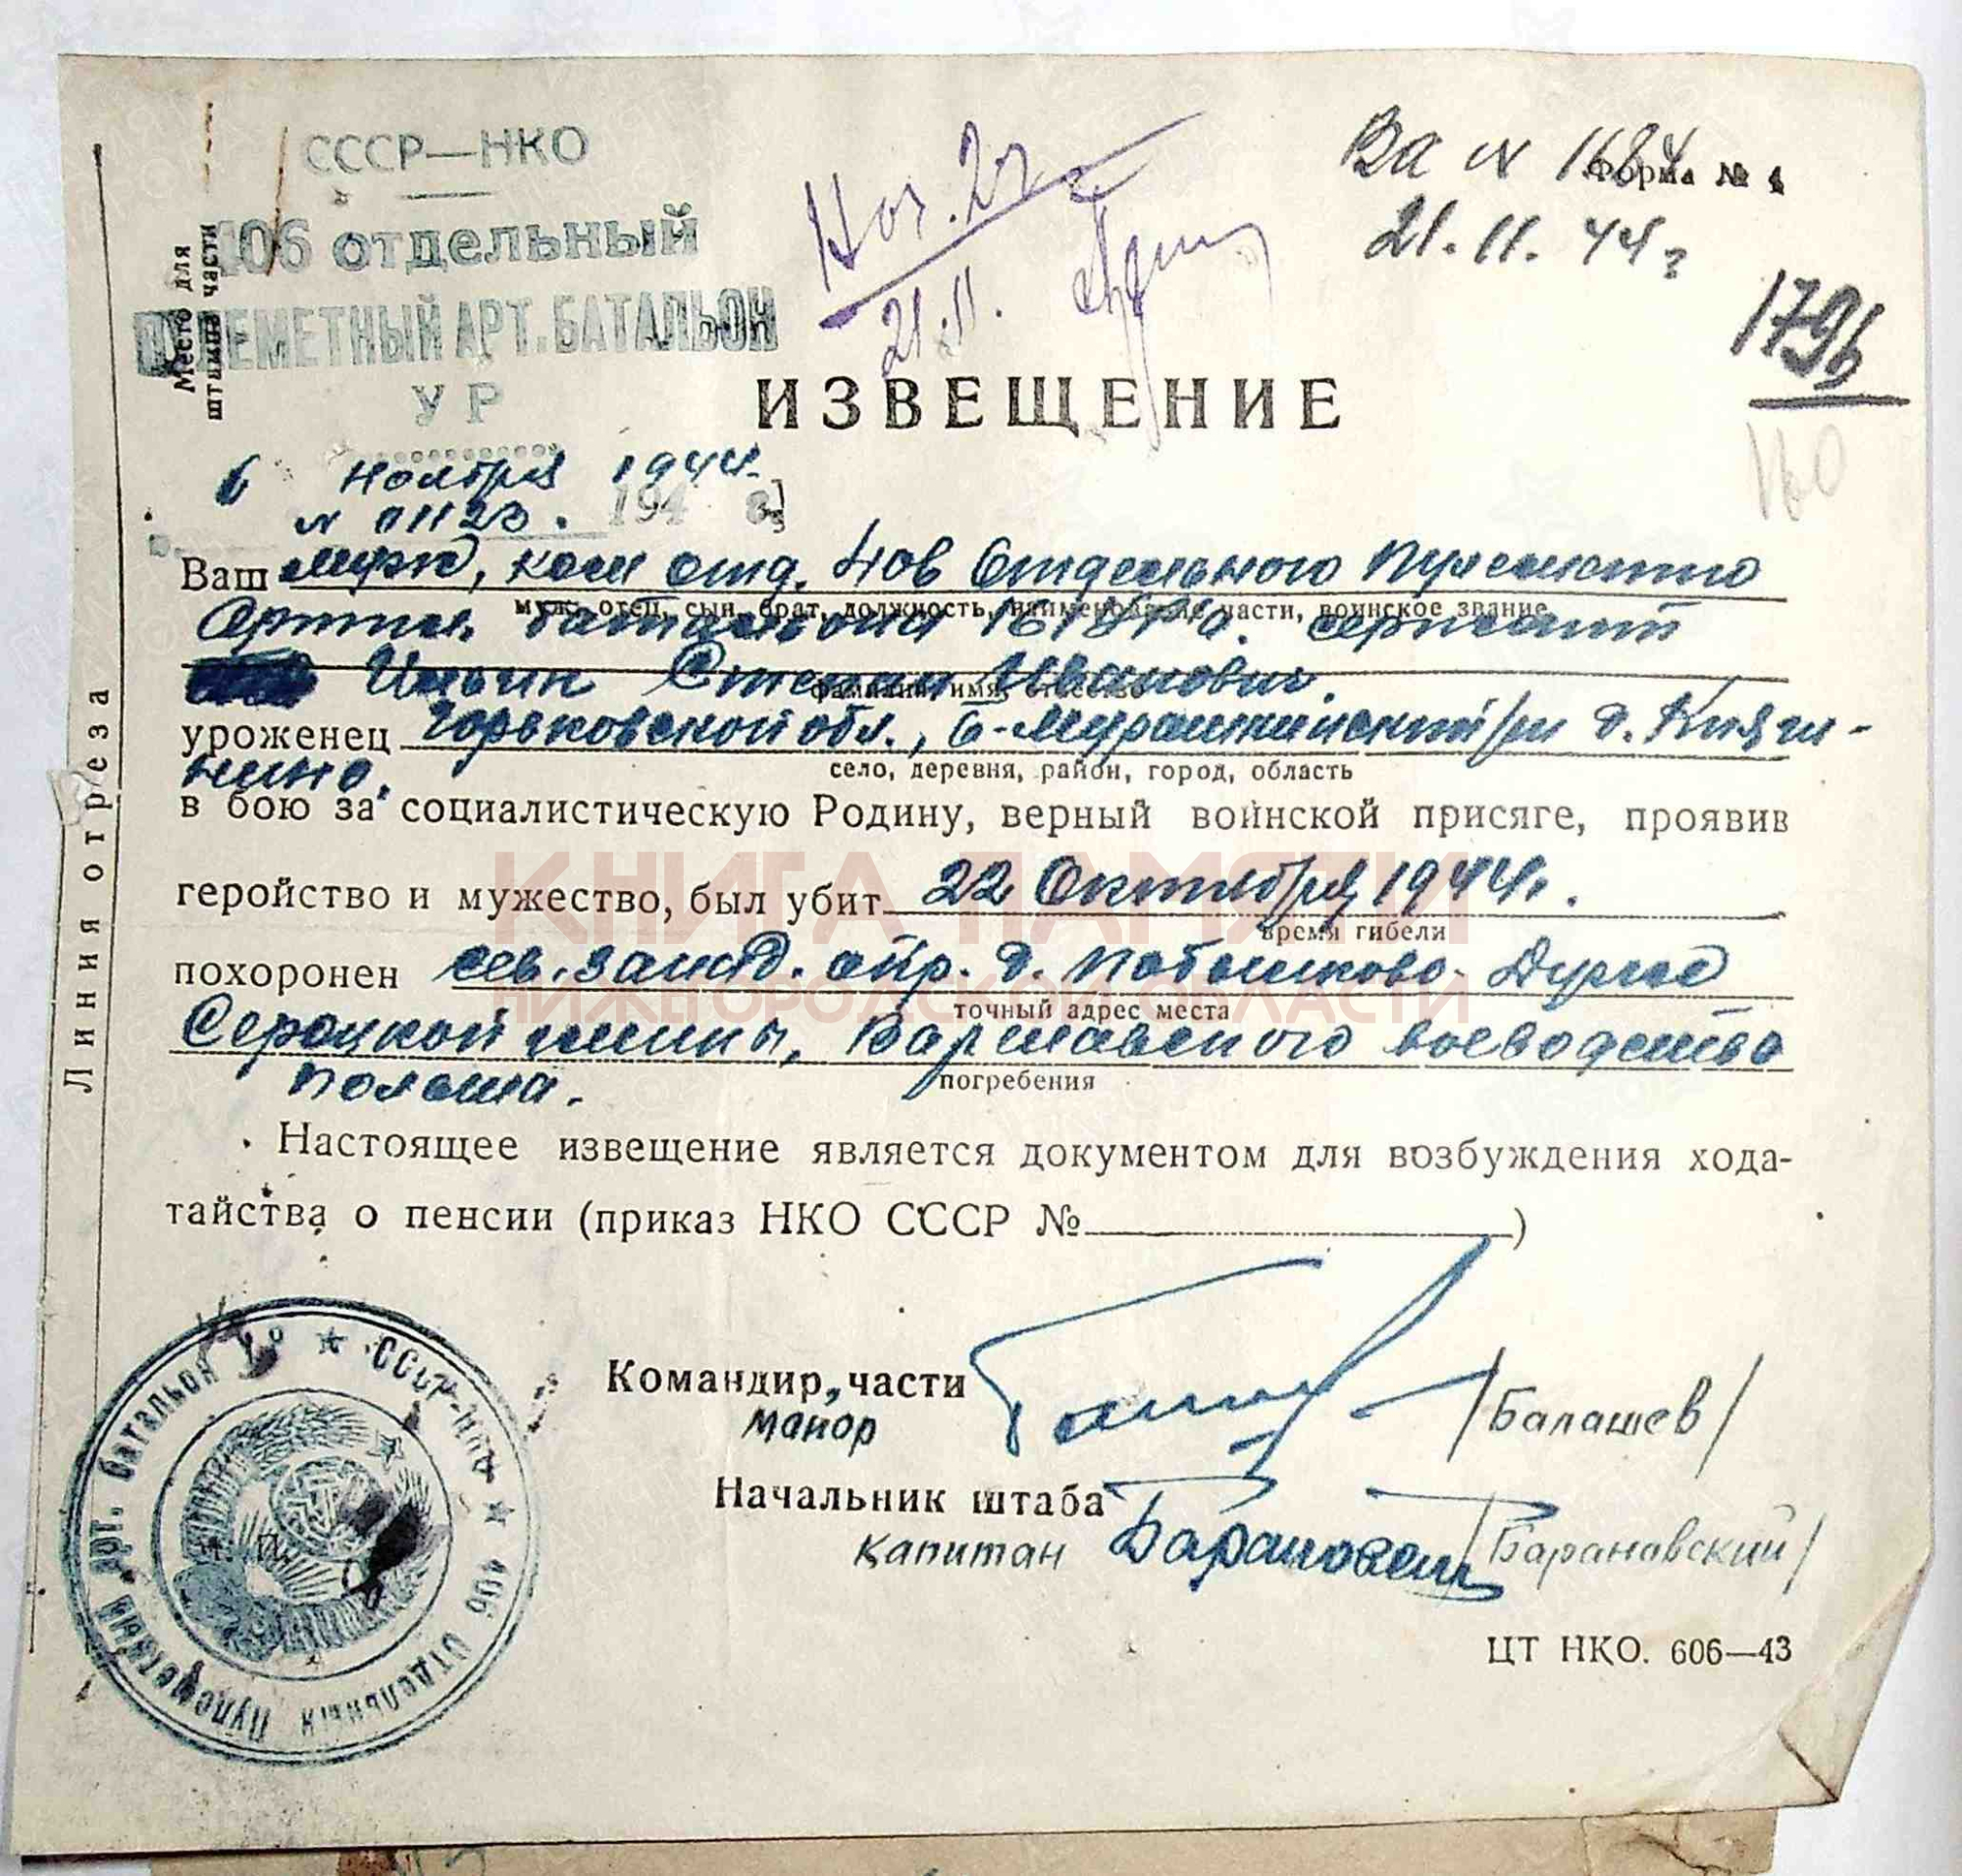 СССР—НКО
406 отдельный
ПУЛЕМЕТНЫЙ АРТ. БАТАЛЬОН
УР
Место для
штампа части
Ноя. 21.11.
Вх № 1684
Форма № 4
21.11.44 г
1796
160
ИЗВЕЩЕНИЕ
6 Ноября 1944.
194 г.
№ 01123.
Ваш муж, ком отд. 406 Отдельного Пулеметно
муж, отец, сын, брат, должность, наименование части, воинское звание
Артил. батальона 161 УР'а. сержант
Ильин Степан Иванович.
фамилия, имя, отчество
уроженец Горьковской обл., Б-Мурашкинский р/н д. Княги-
нино.
село, деревня, район, город, область
в бою за социалистическую Родину, верный воинской присяге, проявив
геройство и мужество, был убит 22 Октября 1944г.
время гибели
похоронен сев. запад. окр. д. Дуже
точный адрес места
Сероцкой гмины, Варшавского воеводства
погребения
Польша.
Настоящее извещение является документом для возбуждения хода-
тайства о пенсии (приказ НКО СССР № )
Командир части
майор
/Балашев/
Начальник штаба
капитан Барановский /Барановский/
ЦТ НКО. 606—43
Линия отреза
СССР-НКО ★ 406 Отдельный Пулеметный арт. батальон УР ★
М. П.
КНИГА ПАМЯТИ
НИЖЕГОРОДСКОЙ ОБЛАСТИ